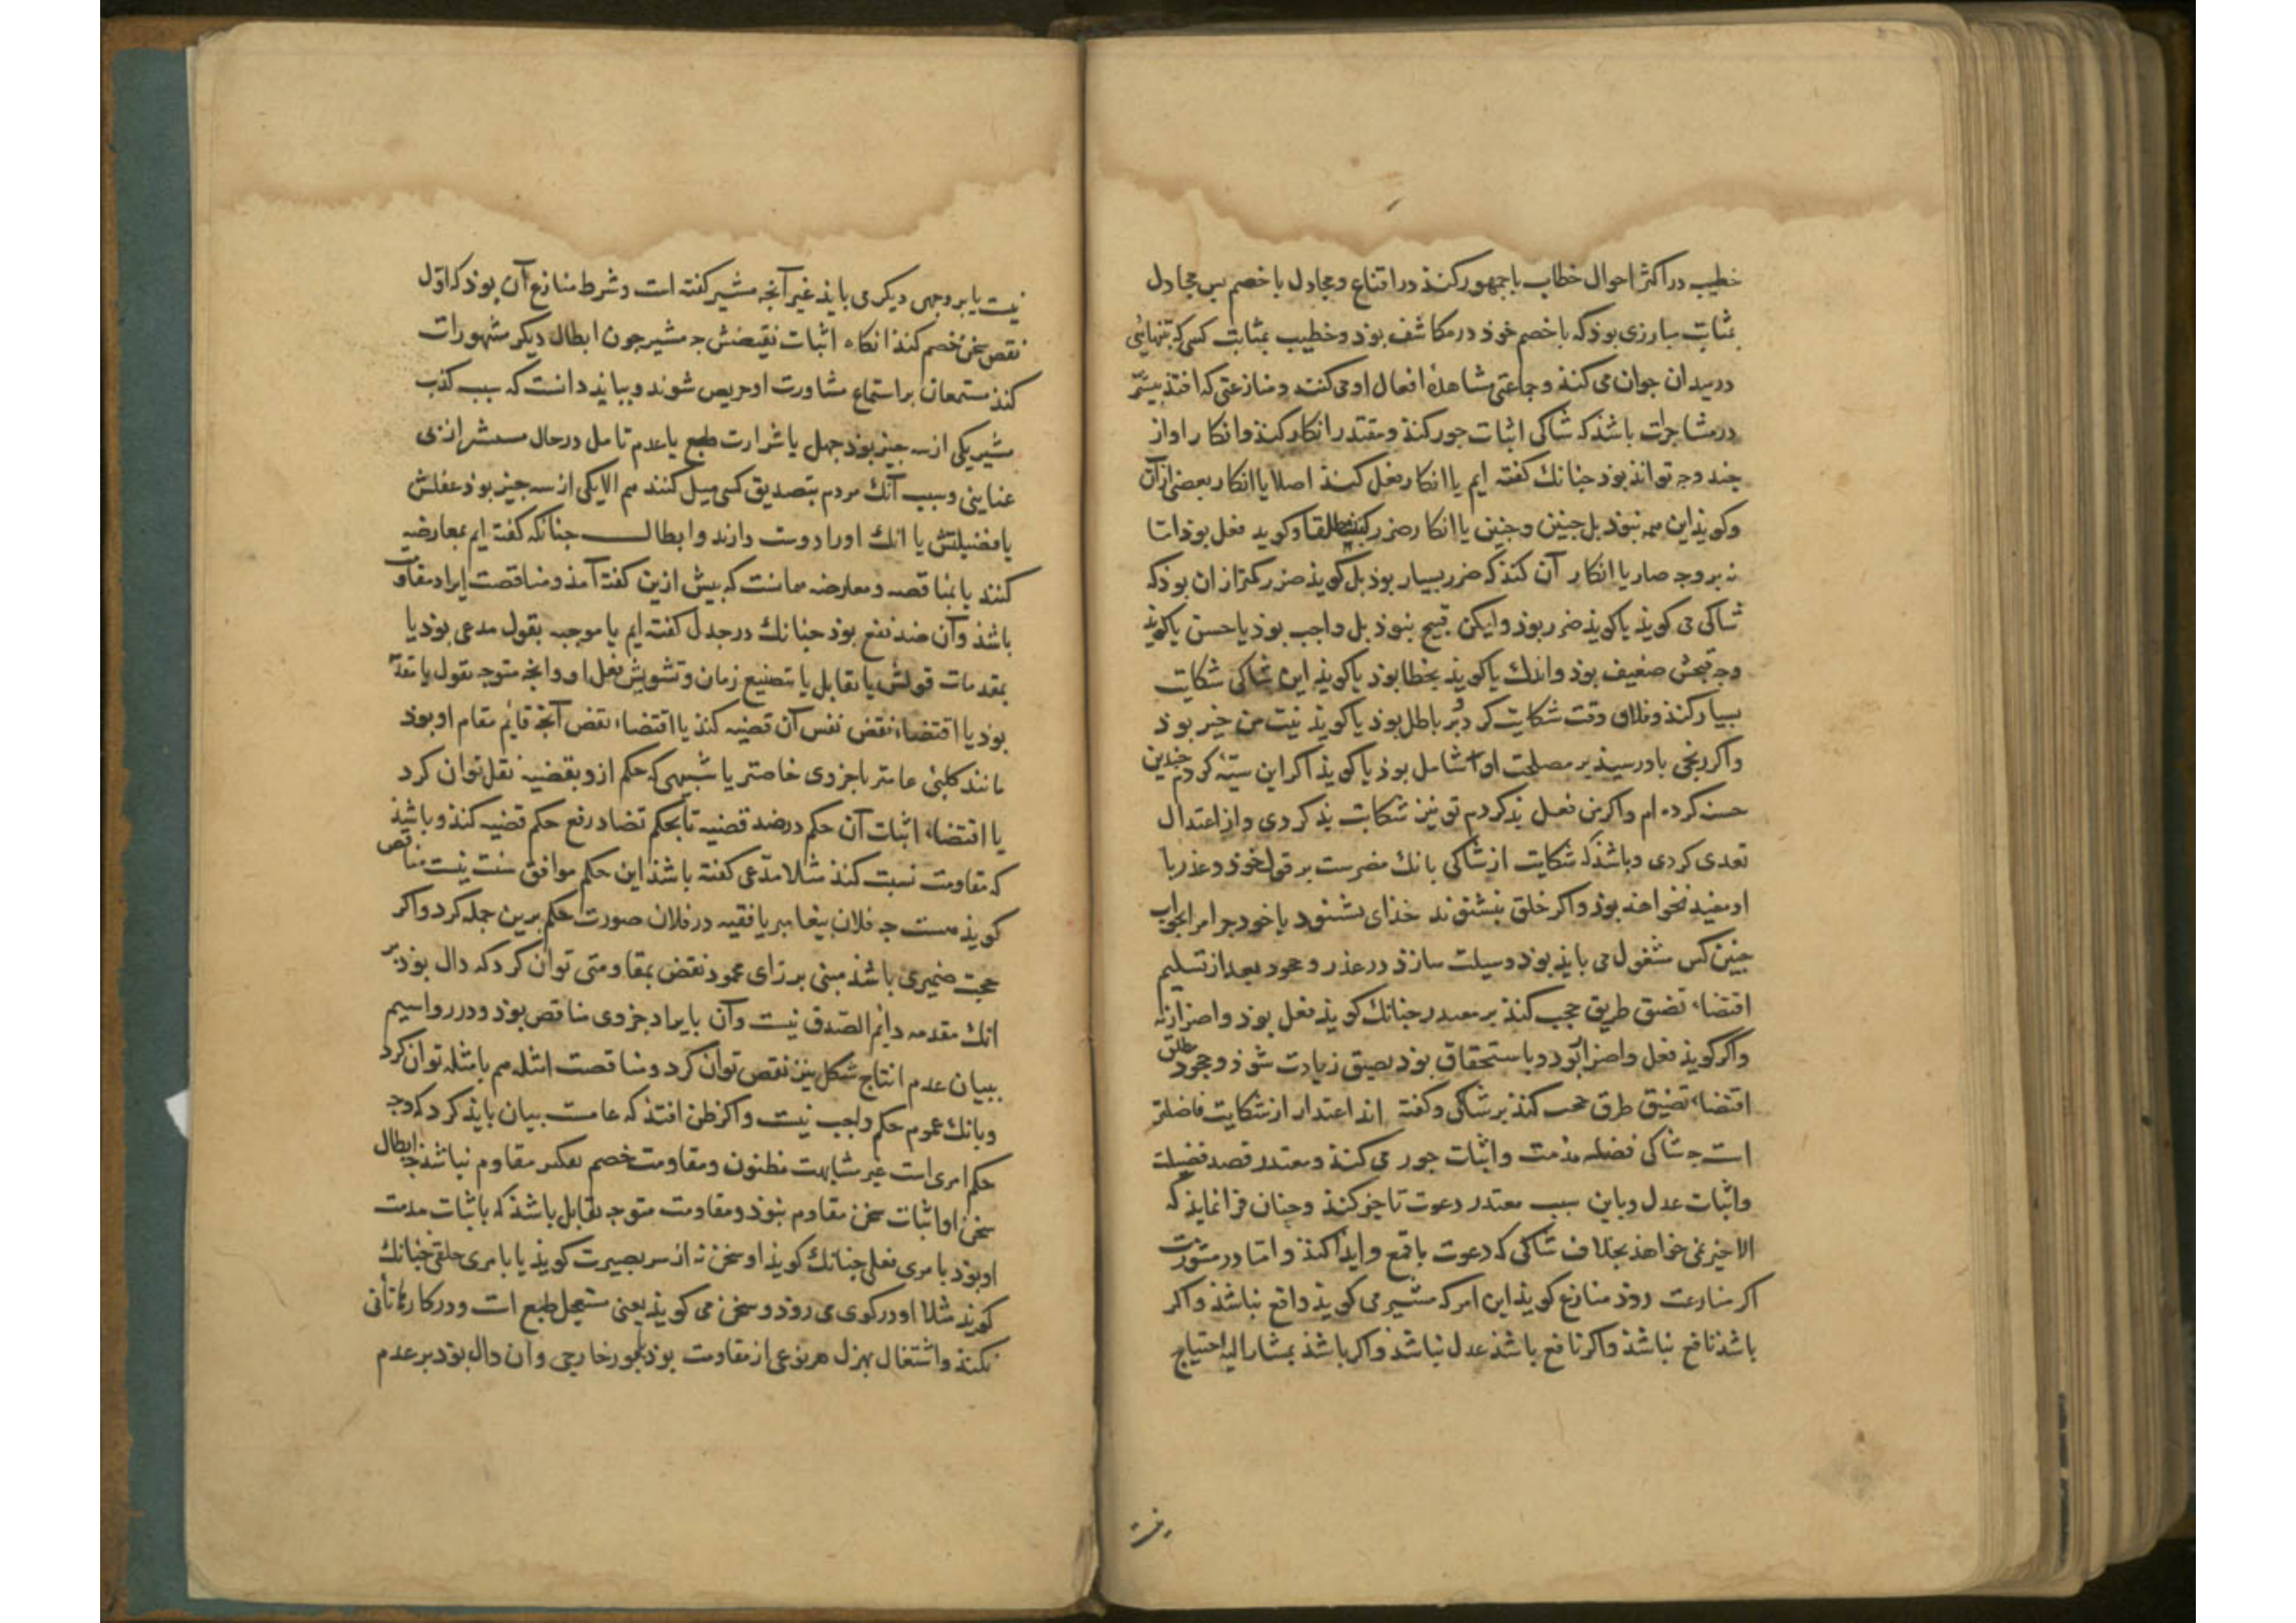 خطیب در اکثر احوال خطاب با جمهور کنذ در اقناع و مجادل با خصم بس مجادل
بمثابت مبارزی بوذ که با خصم خوذ در مکاشف بوذ و خطیب بمثابت کسی که بتنهائی
در میدان جولان می کنذ و جماعتی مشاهدهٔ افعال او می کنند و منازعتی که افتذ بیشتر
در مشاجرات باشذ که شاکی اثبات جور کنذ و معتذر انکار کنذ و انکار او از
چند وجه تواند بوذ جنانک گفته ایم یا انکار فعل کنذ اصلا یا انکار بعضی از آن
و کویذ این همه نبوذ بل جنین و جنین یا انکار ضرر کنذ مطلقا و کوید فعل بوذ اما
نه بر وجه ضار یا انکار آن کنذ که ضرر بسیار بوذ بل کویذ ضرر کمتر از ان بوذ که
شاکی می کویذ یا کویذ ضرر بوذ ولیکن قبیح نبوذ بل واجب بوذ یا حسن یا کویذ
وجه قبحش ضعیف بوذ و اندک یا کویذ بخطا بوذ یا کویذ این شاکی شکایت
بسیار کنذ و فلان وقت شکایت کرد و بر باطل بوذ یا کویذ نیت من خیر بوذ
و اکر رنجی باو رسیذ بر مصلحت او شامل بوذ یا کویذ اکر این سیئه کردم جندین
حسنه کرده ام و اکر من فعل بذ کردم تو نیز شکایت بذ کردی و از اعتدال
تعدی کردی و باشذ که شکایت از شاکی بانک مضرست بر قول خوذ و عذر با
او مفید نخواهذ بوذ و اکر خلق بنشنوند خذای بشنوذ یا خود جرا مرا بجواب
جنین کس مشغول می بایذ بوذ وسیلت سازذ در عذر و جحود بعد از تسلیم
اقتضاء تضیق طریق حجب کنذ بر معتذر جنانک کویذ فعل بوذ و اضرار نه
و اکر کویذ فعل و اضرار بوذ و باستحقاق بوذ تضیق زیادت شوذ و جحود مطلق
اقتضاء تضیق طرق حجب کنذ بر شاکی و کفته اند اعتذار از شکایت فاضلتر
است جه شاکی قصد مذمت و اثبات جور می کنذ و معتذر قصد فضیلت
و اثبات عدل و باین سبب معتذر دعوت تا خیر کنذ و جنان فرا نمایذ که
الا خیر نمی خواهذ بخلاف شاکی که دعوت با قمع و ایذا کنذ و اما در مشورت
اکر منازعت روذ منازع کویذ این امر که مشیر می کویذ واقع نباشذ و اکر
باشذ نافع نباشذ و اکر نافع باشذ عدل نباشذ و اکر باشذ بمشار الیه احتیاج
نیست یا بر وجهی دیکر می بایذ غیر آنجه مشیر کفته است و شرط منازع آن بوذ که اول
نقض سخن خصم کنذ انکاه اثبات نقیضش جه مشیر جون ابطال دیکر مشهورات
کنذ مستمعان بر استماع مشاورت او حریص شوند و بباید دانست که سبب کذب
مشیر یکی از سه جیز بوذ جهل یا شرارت طبع یا عدم تامل در حال
عنایتی و سبب آنک مردم بتصدیق کسی میل کنند هم الا یکی از سه جیز بوذ عقلش
یا فضیلتش یا انک او را دوست دارند و ابطال جنانکه کفته ایم بمعارضه
کنند یا بمناقضه و معارضه همانست که بیش ازین کفته آمذ و مناقضت ایراد مقاومت
باشذ و آن ضد نفع بوذ جنانک در جدل کفته ایم یا موجبه بقول مدعی بوذ یا
بمقدمات قولش یا بقایل یا بتضییع زمان و تشویش فعل او و انجه متوجه بقول یا مقدمه
بوذ یا اقتضاء نقض نفس آن قضیه کنذ یا اقتضاء نقض آنجه قایم مقام او بوذ
مانند کلیئی عامتر یا جزوی خاصتر یا شبیهی که حکم ازو بقضیه نقل توان کرد
یا اقتضاء اثبات آن حکم در ضد قضیه تا بحکم تضاد رفع حکم قضیه کنذ و باشذ
که مقاومت نسبت کنذ مثلا مدعی کفته باشذ این حکم موافق سنت نیست مناقض
کویذ هست جه فلان بیغامبر یا فقیه در فلان صورت حکم برین جمله کرد و اکر
حجت ضمیری باشذ مبنی بر رای محمود نقض بمقاومتی توان کرد که دال بوذ بر
انک مقدمه دایم الصدق نیست و آن بایراد جزوی مناقض بوذ و در رواسیم
ببیان عدم انتاج شکل نیز نقض توان کرد و مناقضت امثله هم بامثله توان کرد
و بانک عموم حکم واجب نیست و اکر ظن افتذ که عامست بیان بایذ کرد که وجه
حکم امری است غیر مشابهت مظنون و مقاومت خصم بعکس مقاوم نباشذ جه ابطال
سخن او اثبات سخن مقاوم نبوذ و مقاومت متوجه بقایل باشذ که باثبات مذمت
او بوذ بامری فعلی جنانک کویذ او سخن نه از سر بصیرت کویذ یا بامری خلقی جنانک
کویند مثلا او در کوی می روذ و سخن می کویذ یعنی مستعجل طبع است و در کارها تانی
نکنذ و اشتغال بهزل هر نوعی از مقاومت بوذ بامور خارجی و آن دال بوذ بر عدم